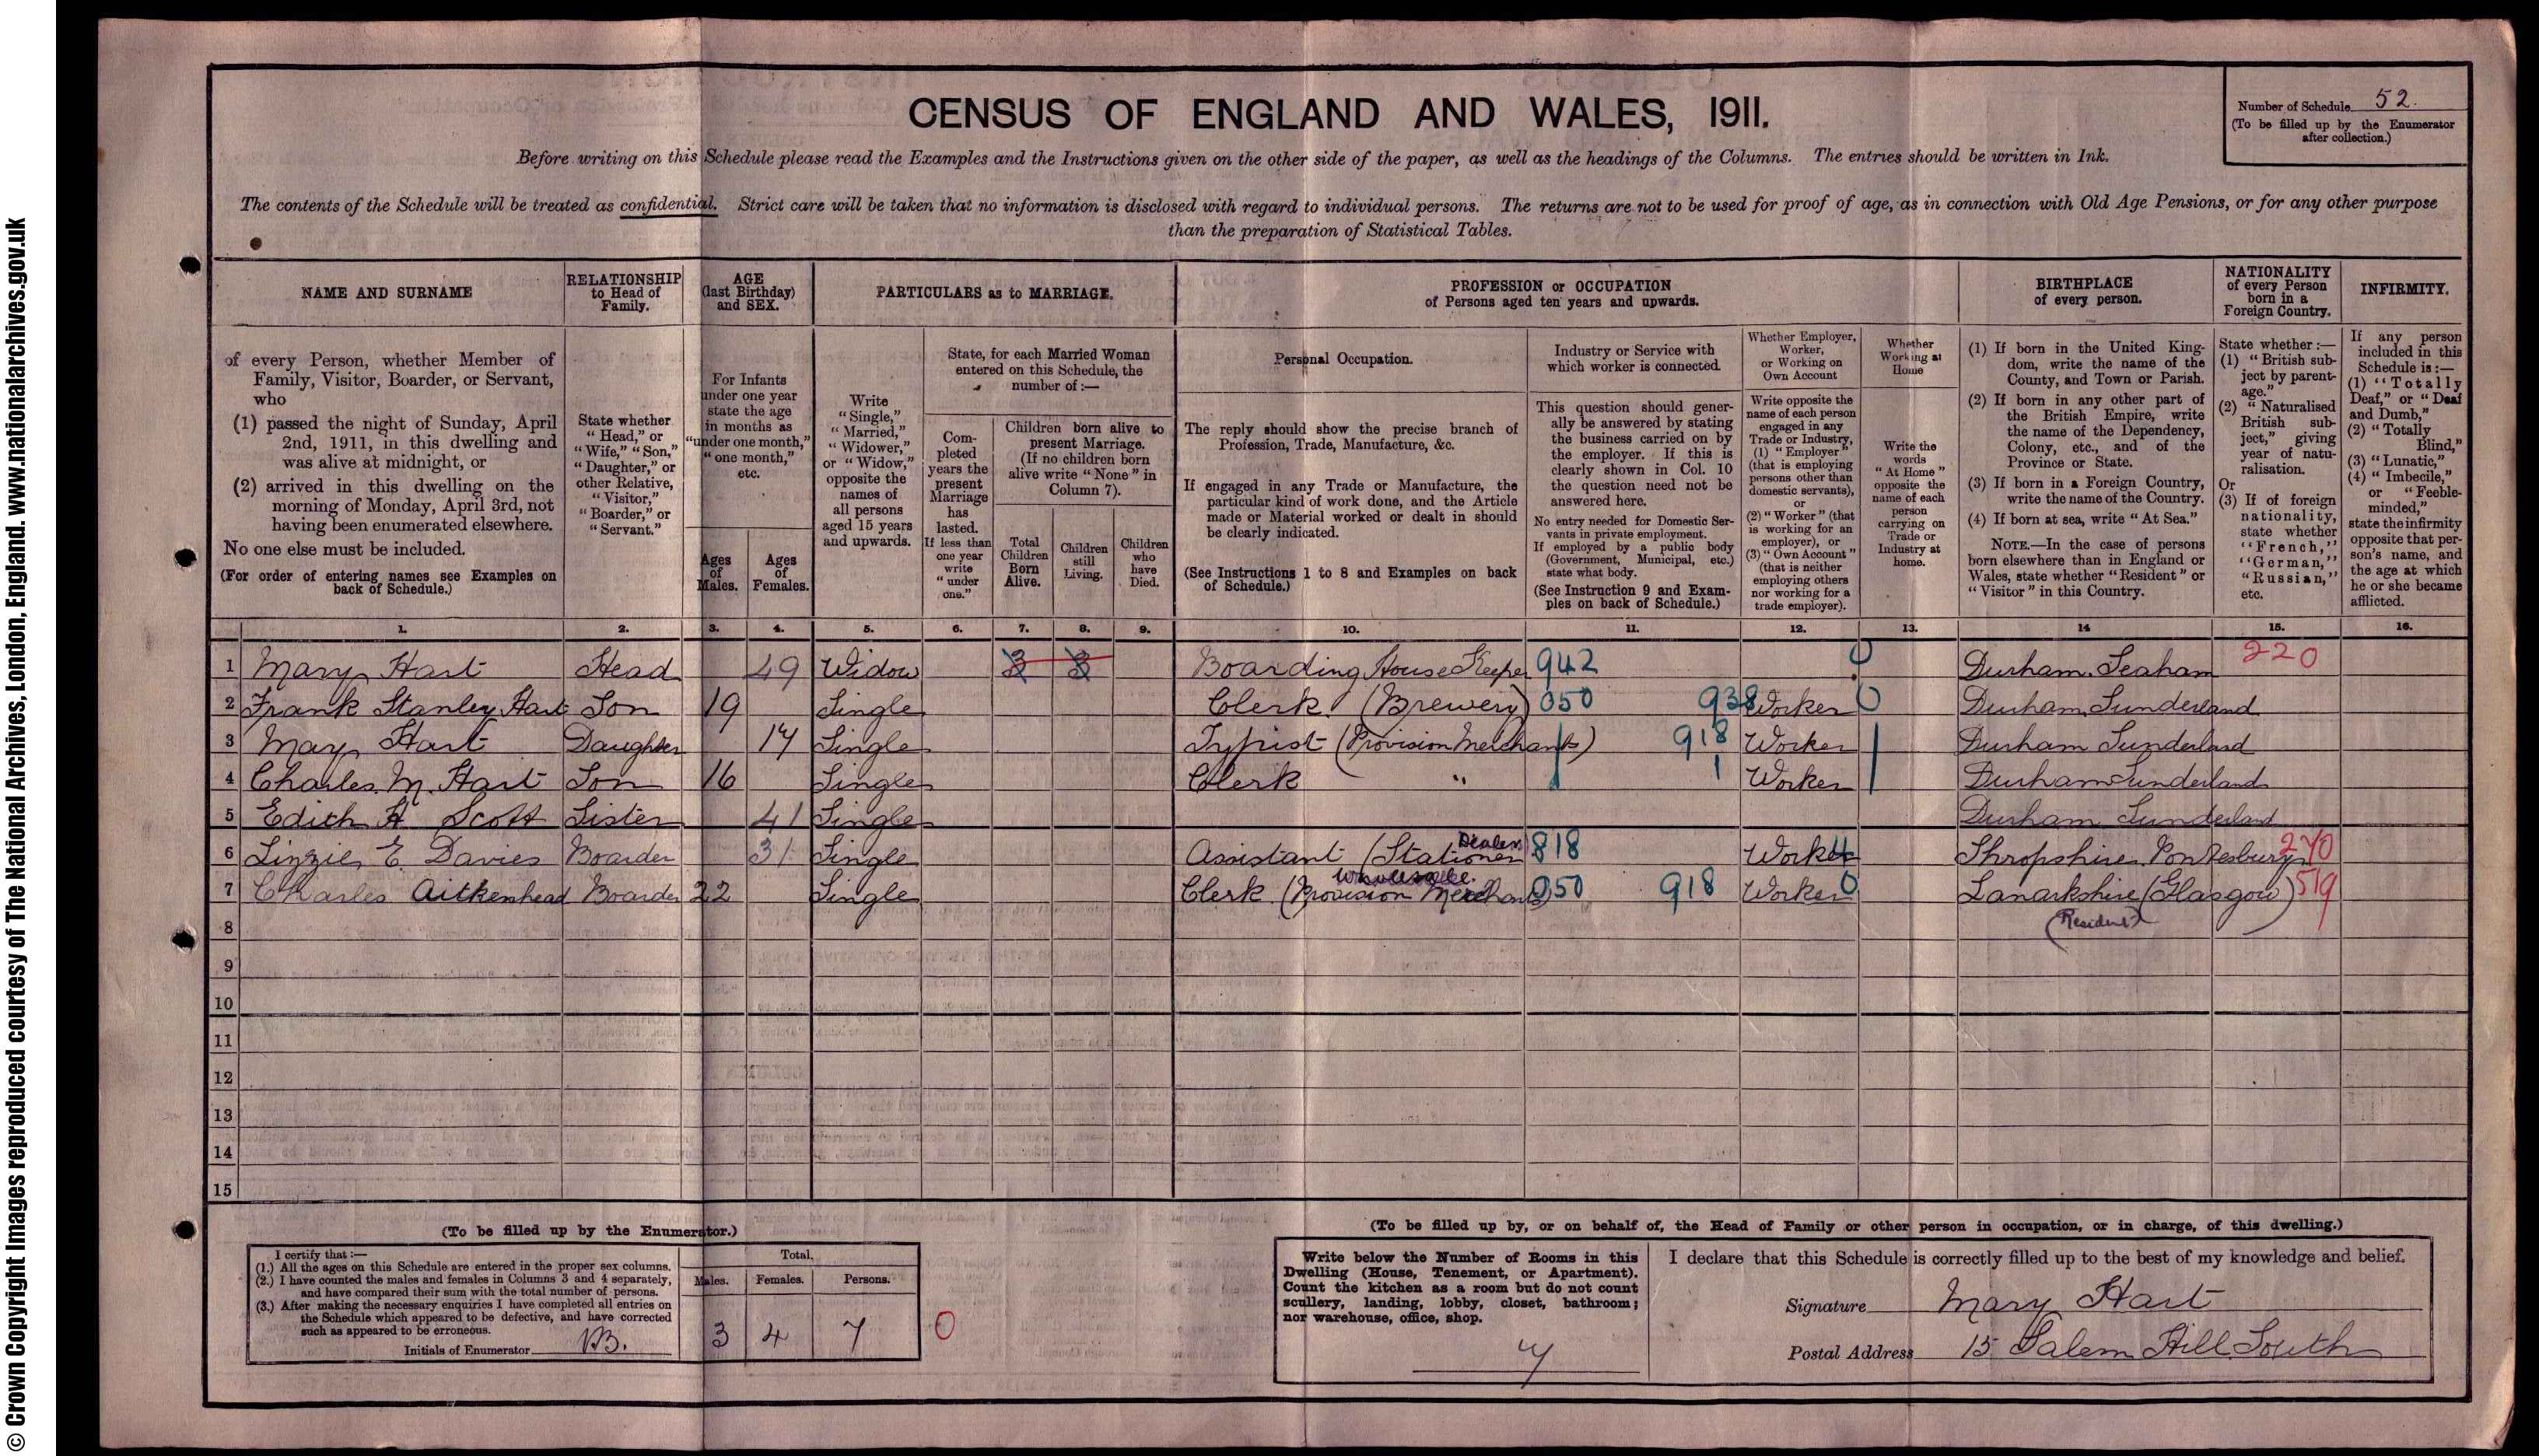 © Crown Copyright Images reproduced courtesy of The National Archives, London, England. www.nationalarchives.gov.uk
CENSUS OF ENGLAND AND WALES, 1911.
Number of Schedule 52.
(To be filled up by the Enumerator after collection.)
Before writing on this Schedule please read the Examples and the Instructions given on the other side of the paper, as well as the headings of the Columns. The entries should be written in Ink.
The contents of the Schedule will be treated as confidential. Strict care will be taken that no information is disclosed with regard to individual persons. The returns are not to be used for proof of age, as in connection with Old Age Pensions, or for any other purpose
than the preparation of Statistical Tables.
NAME AND SURNAME
of every Person, whether Member of
Family, Visitor, Boarder, or Servant,
who
(1) passed the night of Sunday, April
2nd, 1911, in this dwelling and
was alive at midnight, or
(2) arrived in this dwelling on the
morning of Monday, April 3rd, not
having been enumerated elsewhere.
No one else must be included.
(For order of entering names see Examples on
back of Schedule.)
RELATIONSHIP
to Head of
Family.
State whether
"Head," or
"Wife," "Son,"
"Daughter," or
other Relative,
"Visitor,"
"Boarder," or
"Servant."
AGE
(last Birthday)
and SEX.
For Infants
under one year
state the age
in months as
"under one month,"
"one month,"
etc.
Ages
of
Males.
Ages
of
Females.
PARTICULARS as to MARRIAGE.
Write
"Single,"
"Married,"
"Widower,"
or "Widow,"
opposite the
names of
all persons
aged 15 years
and upwards.
State, for each Married Woman
entered on this Schedule, the
number of :—
Com-
pleted
years the
present
Marriage
has
lasted.
If less than
one year
write
"under
one."
Children born alive to
present Marriage.
(If no children born
alive write "None" in
Column 7).
Total
Children
Born
Alive.
Children
still
Living.
Children
who
have
Died.
PROFESSION or OCCUPATION
of Persons aged ten years and upwards.
Personal Occupation.
The reply should show the precise branch of
Profession, Trade, Manufacture, &c.
If engaged in any Trade or Manufacture, the
particular kind of work done, and the Article
made or Material worked or dealt in should
be clearly indicated.
(See Instructions 1 to 8 and Examples on back
of Schedule.)
Industry or Service with
which worker is connected.
This question should gener-
ally be answered by stating
the business carried on by
the employer. If this is
clearly shown in Col. 10
the question need not be
answered here.
No entry needed for Domestic Ser-
vants in private employment.
If employed by a public body
(Government, Municipal, etc.)
state what body.
(See Instruction 9 and Exam-
ples on back of Schedule.)
Whether Employer,
Worker,
or Working on
Own Account
Write opposite the
name of each person
engaged in any
Trade or Industry,
(1) "Employer"
(that is employing
persons other than
domestic servants),
or
(2) "Worker" (that
is working for an
employer), or
(3) "Own Account"
(that is neither
employing others
nor working for a
trade employer).
Whether
Working at
Home
Write the
words
"At Home"
opposite the
name of each
person
carrying on
Trade or
Industry at
home.
BIRTHPLACE
of every person.
(1) If born in the United King-
dom, write the name of the
County, and Town or Parish.
(2) If born in any other part of
the British Empire, write
the name of the Dependency,
Colony, etc., and of the
Province or State.
(3) If born in a Foreign Country,
write the name of the Country.
(4) If born at sea, write "At Sea."
NOTE.—In the case of persons
born elsewhere than in England or
Wales, state whether "Resident" or
"Visitor" in this Country.
NATIONALITY
of every Person
born in a
Foreign Country.
State whether :—
(1) "British sub-
ject by parent-
age."
(2) "Naturalised
British sub-
ject," giving
year of natu-
ralisation.
Or
(3) If of foreign
nationality,
state whether
"French,"
"German,"
"Russian,"
etc.
INFIRMITY.
If any person
included in this
Schedule is :—
(1) "Totally
Deaf," or "Deaf
and Dumb,"
(2) "Totally
Blind,"
(3) "Lunatic,"
(4) "Imbecile,"
or "Feeble-
minded,"
state the infirmity
opposite that per-
son's name, and
the age at which
he or she became
afflicted.
1. 2. 3. 4. 5. 6. 7. 8. 9. 10. 11. 12. 13. 14 15. 16.
1 Mary Hart Head 49 Widow 3 3 Boarding House Keeper 942 0 Durham. Seaham 220
2 Frank Stanley Hart Son 19 Single Clerk (Brewery) 050 938 Worker 0 Durham Sunderland
3 May Hart Daughter 17 Single Typist (Provision Merchants) 918 Worker Durham Sunderland
4 Charles. M. Hart Son 16 Single Clerk " Worker Durham Sunderland
5 Edith A Scott Sister 41 Single Durham Sunderland
6 Lizzie E. Davies Boarder 31 Single Assistant (Stationer Dealer) 818 Worker Shropshire Pontesbury 240
7 Charles Aitkenhead Boarder 22 Single Clerk (Provision Merchant) Wholesale. 050 918 Worker 0 Lanarkshire (Glasgow) 519
(Resident)
8
9
10
11
12
13
14
15
(To be filled up by the Enumerator.)
I certify that :—
(1.) All the ages on this Schedule are entered in the proper sex columns.
(2.) I have counted the males and females in Columns 3 and 4 separately,
and have compared their sum with the total number of persons.
(3.) After making the necessary enquiries I have completed all entries on
the Schedule which appeared to be defective, and have corrected
such as appeared to be erroneous.
Initials of Enumerator
Total.
Males. Females. Persons.
3 4 7 0
(To be filled up by, or on behalf of, the Head of Family or other person in occupation, or in charge, of this dwelling.)
Write below the Number of Rooms in this
Dwelling (House, Tenement, or Apartment).
Count the kitchen as a room but do not count
scullery, landing, lobby, closet, bathroom;
nor warehouse, office, shop.
I declare that this Schedule is correctly filled up to the best of my knowledge and belief.
Signature Mary Hart
Postal Address 15 Salem Hill South